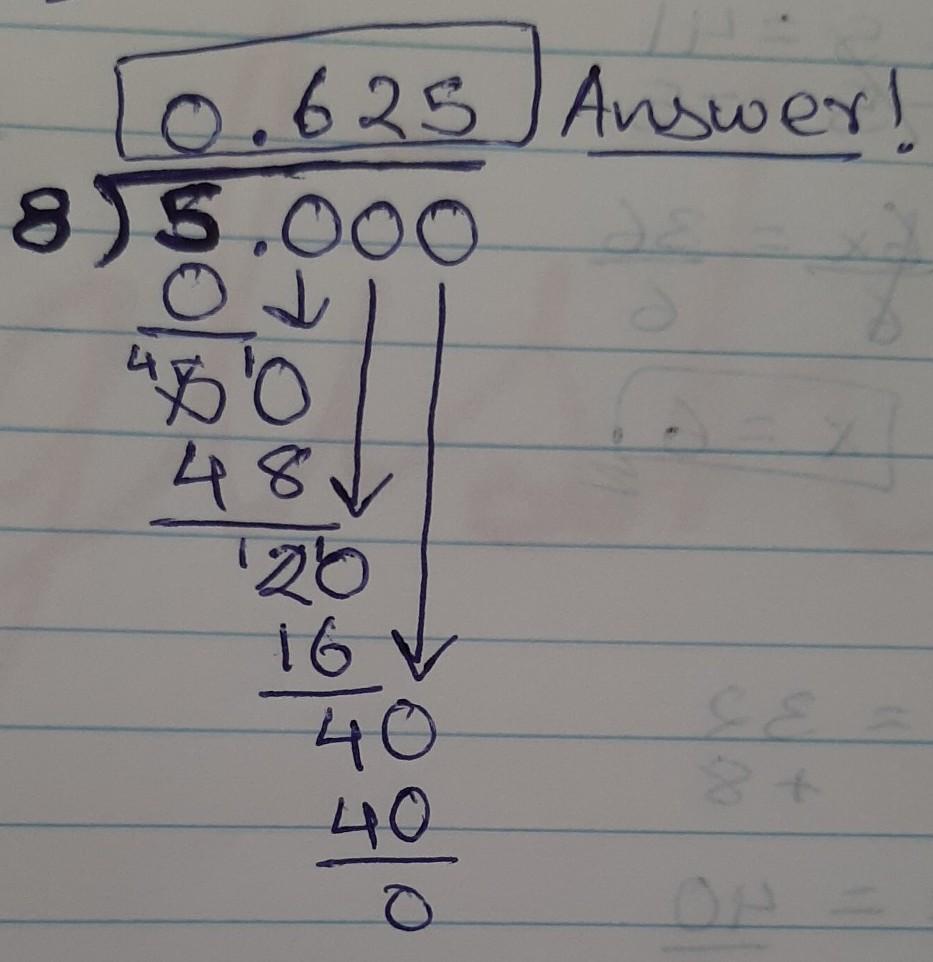 0.625 Answer!
8)5.000
0
4 5 10
48
1 2 10
16
40
40
0